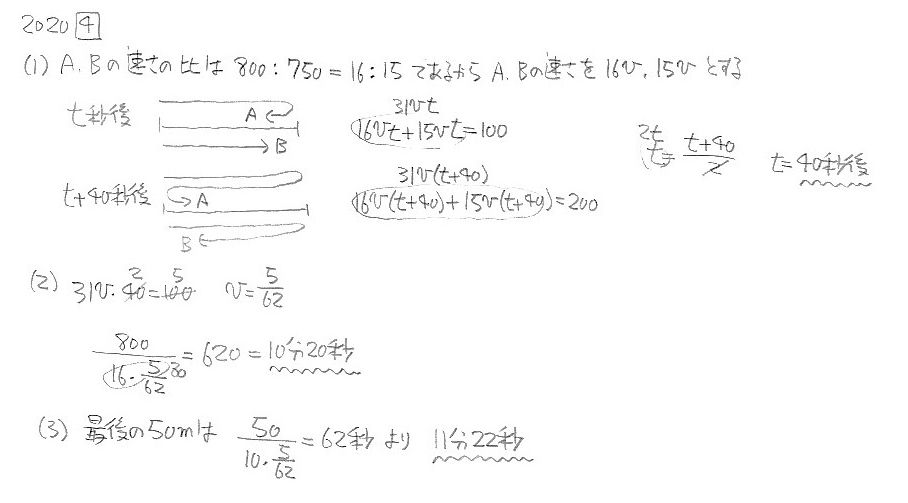 2020 4
(1) A.Bの速さの比は 800:750=16:15 であるから A.Bの速さを 16v, 15v とする
t秒後
A
B
31vt
16vt+15vt=100
t+40秒後
A
B
31v(t+40)
16v(t+40)+15v(t+40)=200
2t
t=(t+40)/2
t=40秒後
(2) 31v・40=100
2 5
v=5/62
800/(16・5/62)=620=10分20秒
(3) 最後の50mは 50/(10・5/62)=62秒より 11分22秒